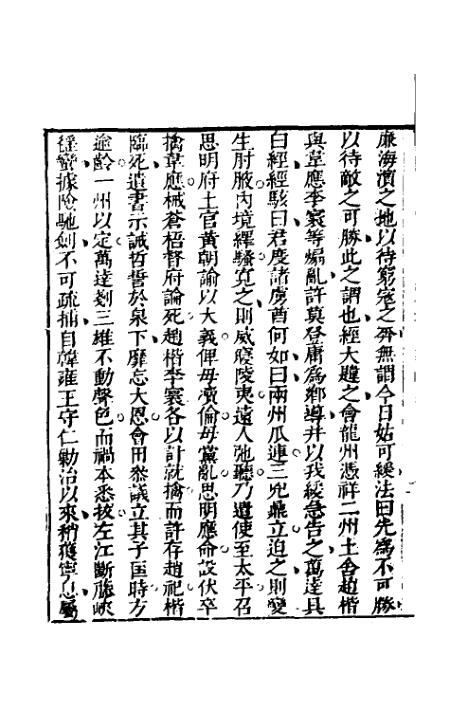 廉海濱之地以待窮寇之斃無謂今日姑可緩法曰先為不可勝
以待敵之可勝此之謂也經大韙之會龍州憑祥二州土舍趙楷
與韋應李寰等煽亂許莫登庸為鄉導幷以我緩急告之萬達具
白經經駭曰君度諸虜酋何如曰兩州瓜連三兇鼎立迫之則變
生肘腋內境繹騷寬之則威廢陵夷遠人弛聽乃遺使至太平召
思明府土官黃朝諭以大義俾毋瀆倫毋黨亂思明應命設伏卒
擒韋應械蒼梧督府論死趙楷李寰各以計就擒而許存趙祀楷
臨死遺書示誡哲誓於泉下靡忘大恩會田叅議立其子匡時方
逾齡一州以定萬達剗三雄不動聲色而禍本悉拔左江斷藤峽
徭蠻據險馳劍不可疏捕自韓雍王守仁勦治以來稍獲寧息屬